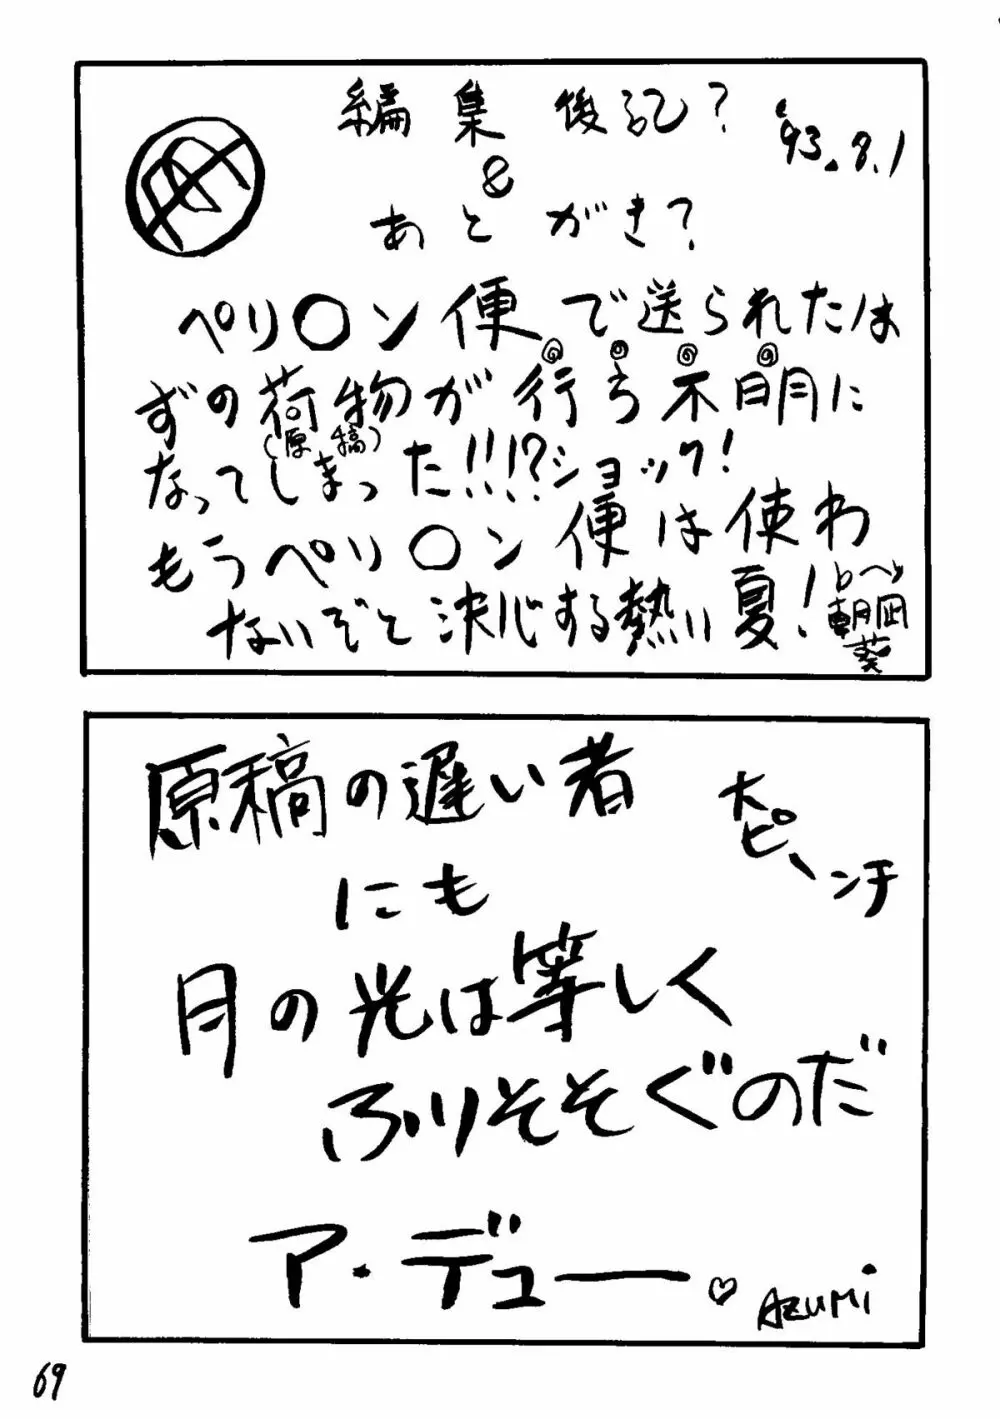 編集後記?
'93.8.1
&
あとがき?
ペリ〇ン便で送られたは
ずの荷物が行ち不明に
(原稿)
なってしまった!!!?ショック!
もうペリ〇ン便は使わ
ないぞと決心する熱い夏!
朝凪
葵
原稿の遅い者
大ピーンチ
にも
月の光は等しく
ふりそそぐのだ
ア・デュー♡
AZUMi
69